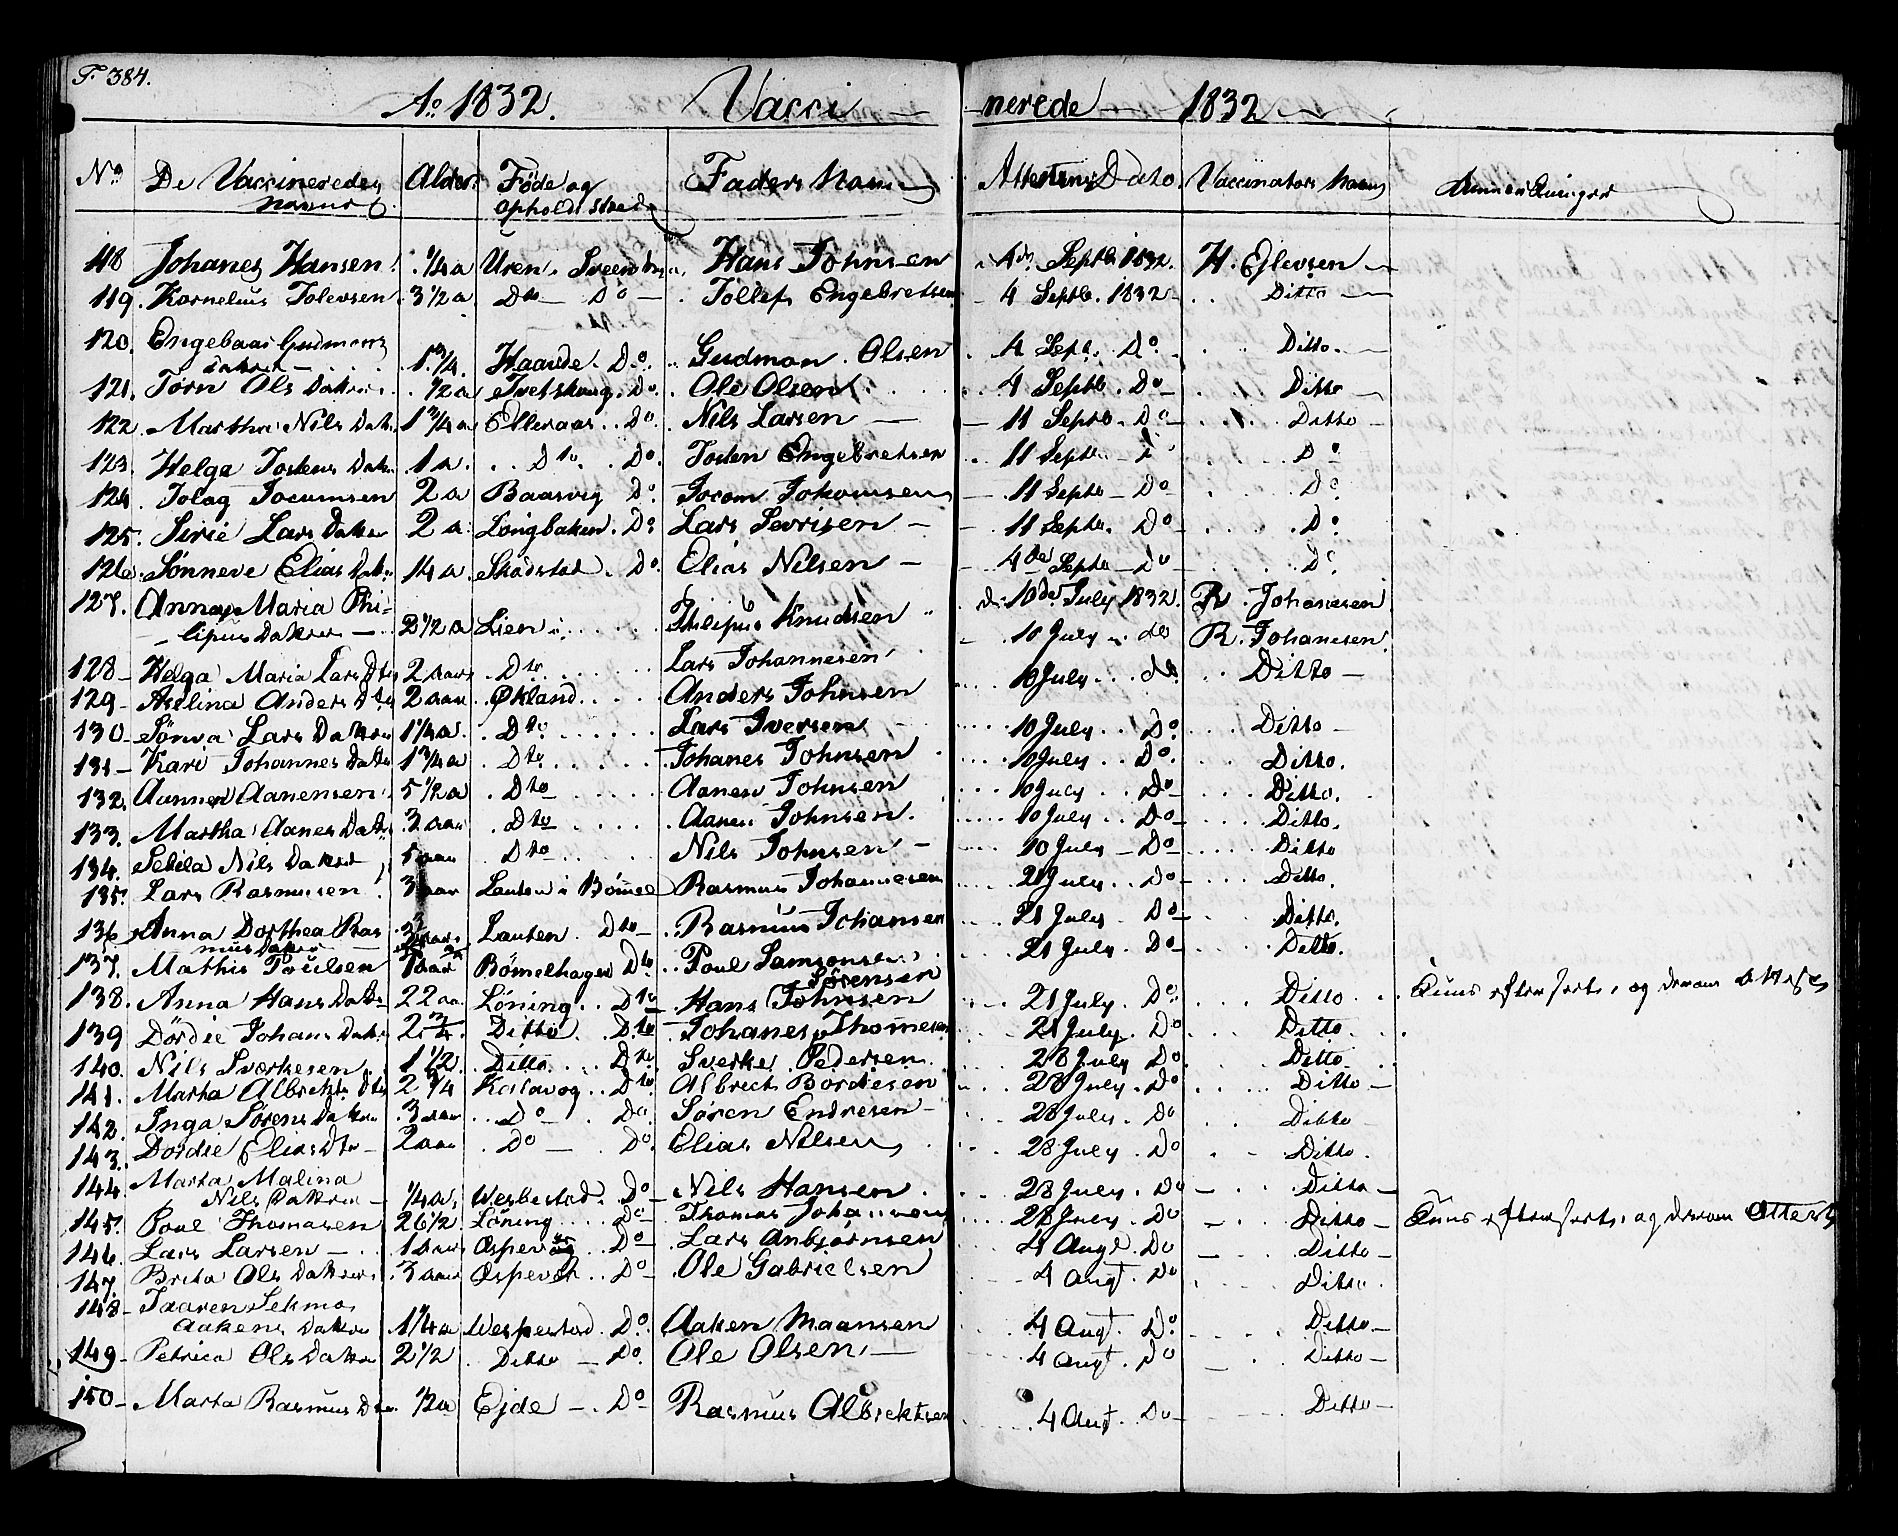 F. 384.
Ao 1832. Vacci - nerede 1832
No De Vaccineredes Navne Alder. Føde og Opholds Sted Faders Navn Attestens Dato Vaccinators Navn Anmerkninger
118 Johanes Hansen 1/4 a Uren. Hans Johnsen 4de Septb 1832. H. Ejlevsen
119. Kornelius Tolevsen 3 1/2 a Dto Do Tollef Engebretsen 4 Septb. 1832 Ditto
120. Engebaar Gudmons
Dakter 1 3/4. Haavde. Do. Gudmon Olsen 4 Sept. Do. Ditto.
121. Torn Ols Dakter 1/2 a Tvetskoug. Do. Ole Olsen 4 Septb. Do Ditto
122. Martha Nils Datr 1 3/4 a Elleraas. Do. Nils Larsen 11 Septb. Do Ditto
123. Helga Jostens Dakr 1 a. Dto. Do. Josten Engebretsen 11 Septb. Do
124. Tolag Jocumsen 2 a Baasvig Do. Jocom Johannsen 11 Septb Do Do
125. Sirie Lars Dakter 2 a Longbaken. Do Lars Sevrisen 11 Septb. Do Do
126. Sønneve Elias Dakr 14 a. Skodstad. Do. Elias Nilsen 4de Septb Do Do
127. Anna Maria Phi- d. 10de July 1832. R. Johanesen
lipus Dakter 2 1/2 a Lien Philipus Knudsen 10 July do R. Johanesen.
128 Helga Maria Lars Dtr 2 aars Dto Lars Johannesen 10 July do Ditto
129 Aselina Anders Dtr 2 aar Økland Anders Johnsen 10 July Do. Ditto
130 Sønva Lars Dakter 1 1/4 a. Dto Lars Iversen 10 July Do. Ditto.
131 Kari Johannes Datr 1 3/4 a Dto Johanes Johnsen 10 July Do Ditto.
132. Aanen Aanensen 5 1/2 a Dto Aanen Johnsen 10 July Do Ditto.
133. Martha Aanes Datr 3 aar Dto Aanen Johnsen. 10 July Do Ditto
134. Selila Nils Dakter 5 aar Dto Nils Johnsen 21 July Do Ditto.
135. Lars Rasmusen 3 aar Lauten i Bömel Rasmus Johannesen 21 July Do Ditto.
136 Anna Dorthea Ras
mus Dakter Lauten Dto Rasmus Johansen 21 July. Do Ditto.
137. Mathis Poulsen 1 aar Bömelhagen Dto Poul Samsonsen
Sörensen
138. Anna Hans Dakter 22 aa. Löning Dto Hans Johnsen 21 July Do. Ditto Kuns efterseete, og derom Attest
139 Dördie Johans Dakr 2 3/4. Ditto Dto Johanes Thomesen 21 July. Do Ditto
140. Nils Sværkesen 1 1/2 Ditto Dto Sverke Pedersen 28 July Do Ditto
141. Marta Albrekts Dtr 2 3/4 Kalavog Dto Albrect Bordesen 28 July. Do Ditto
142. Inga Sörens Dakter 3 aar Do Do. Sören Endresen 28 July. Do Ditto
143. Dordie Elias Dtr 2 aar Do Do. Elias Nilsen 28 July. Do Ditto.
144. Marta Malina
Nils Dakter 1/4 a. Wesbestad. Do Nils Hansen 28 July. Do Ditto
145. Poul Thomasen 26 1/2 Löning Do Thomas Johannesen 28 July. Do Ditto Kuns efterseete, og derom Attest
146. Lars Larsen 1 aar Do Lars Anbjørnsen 4 Augt. Do Ditto
147. Brita Ols Dakter 3 aar Do Ole Gabrielsen 4 Augt. Do Ditto.
148 Taaren Selmo
Aakens Dakter 1 1/4 a Wespestad. Do. Aaken Maansen 4 Augt. Do. Ditto
149 Petrica Ols Dakter 2 1/2 Ditto Do. Ole Olsen 4 Augt. Do Ditto
150 Marta Rasmus Dtr 1/2 a Ejde Do Rasmus Albrektsen 4 Augt. Do Ditto